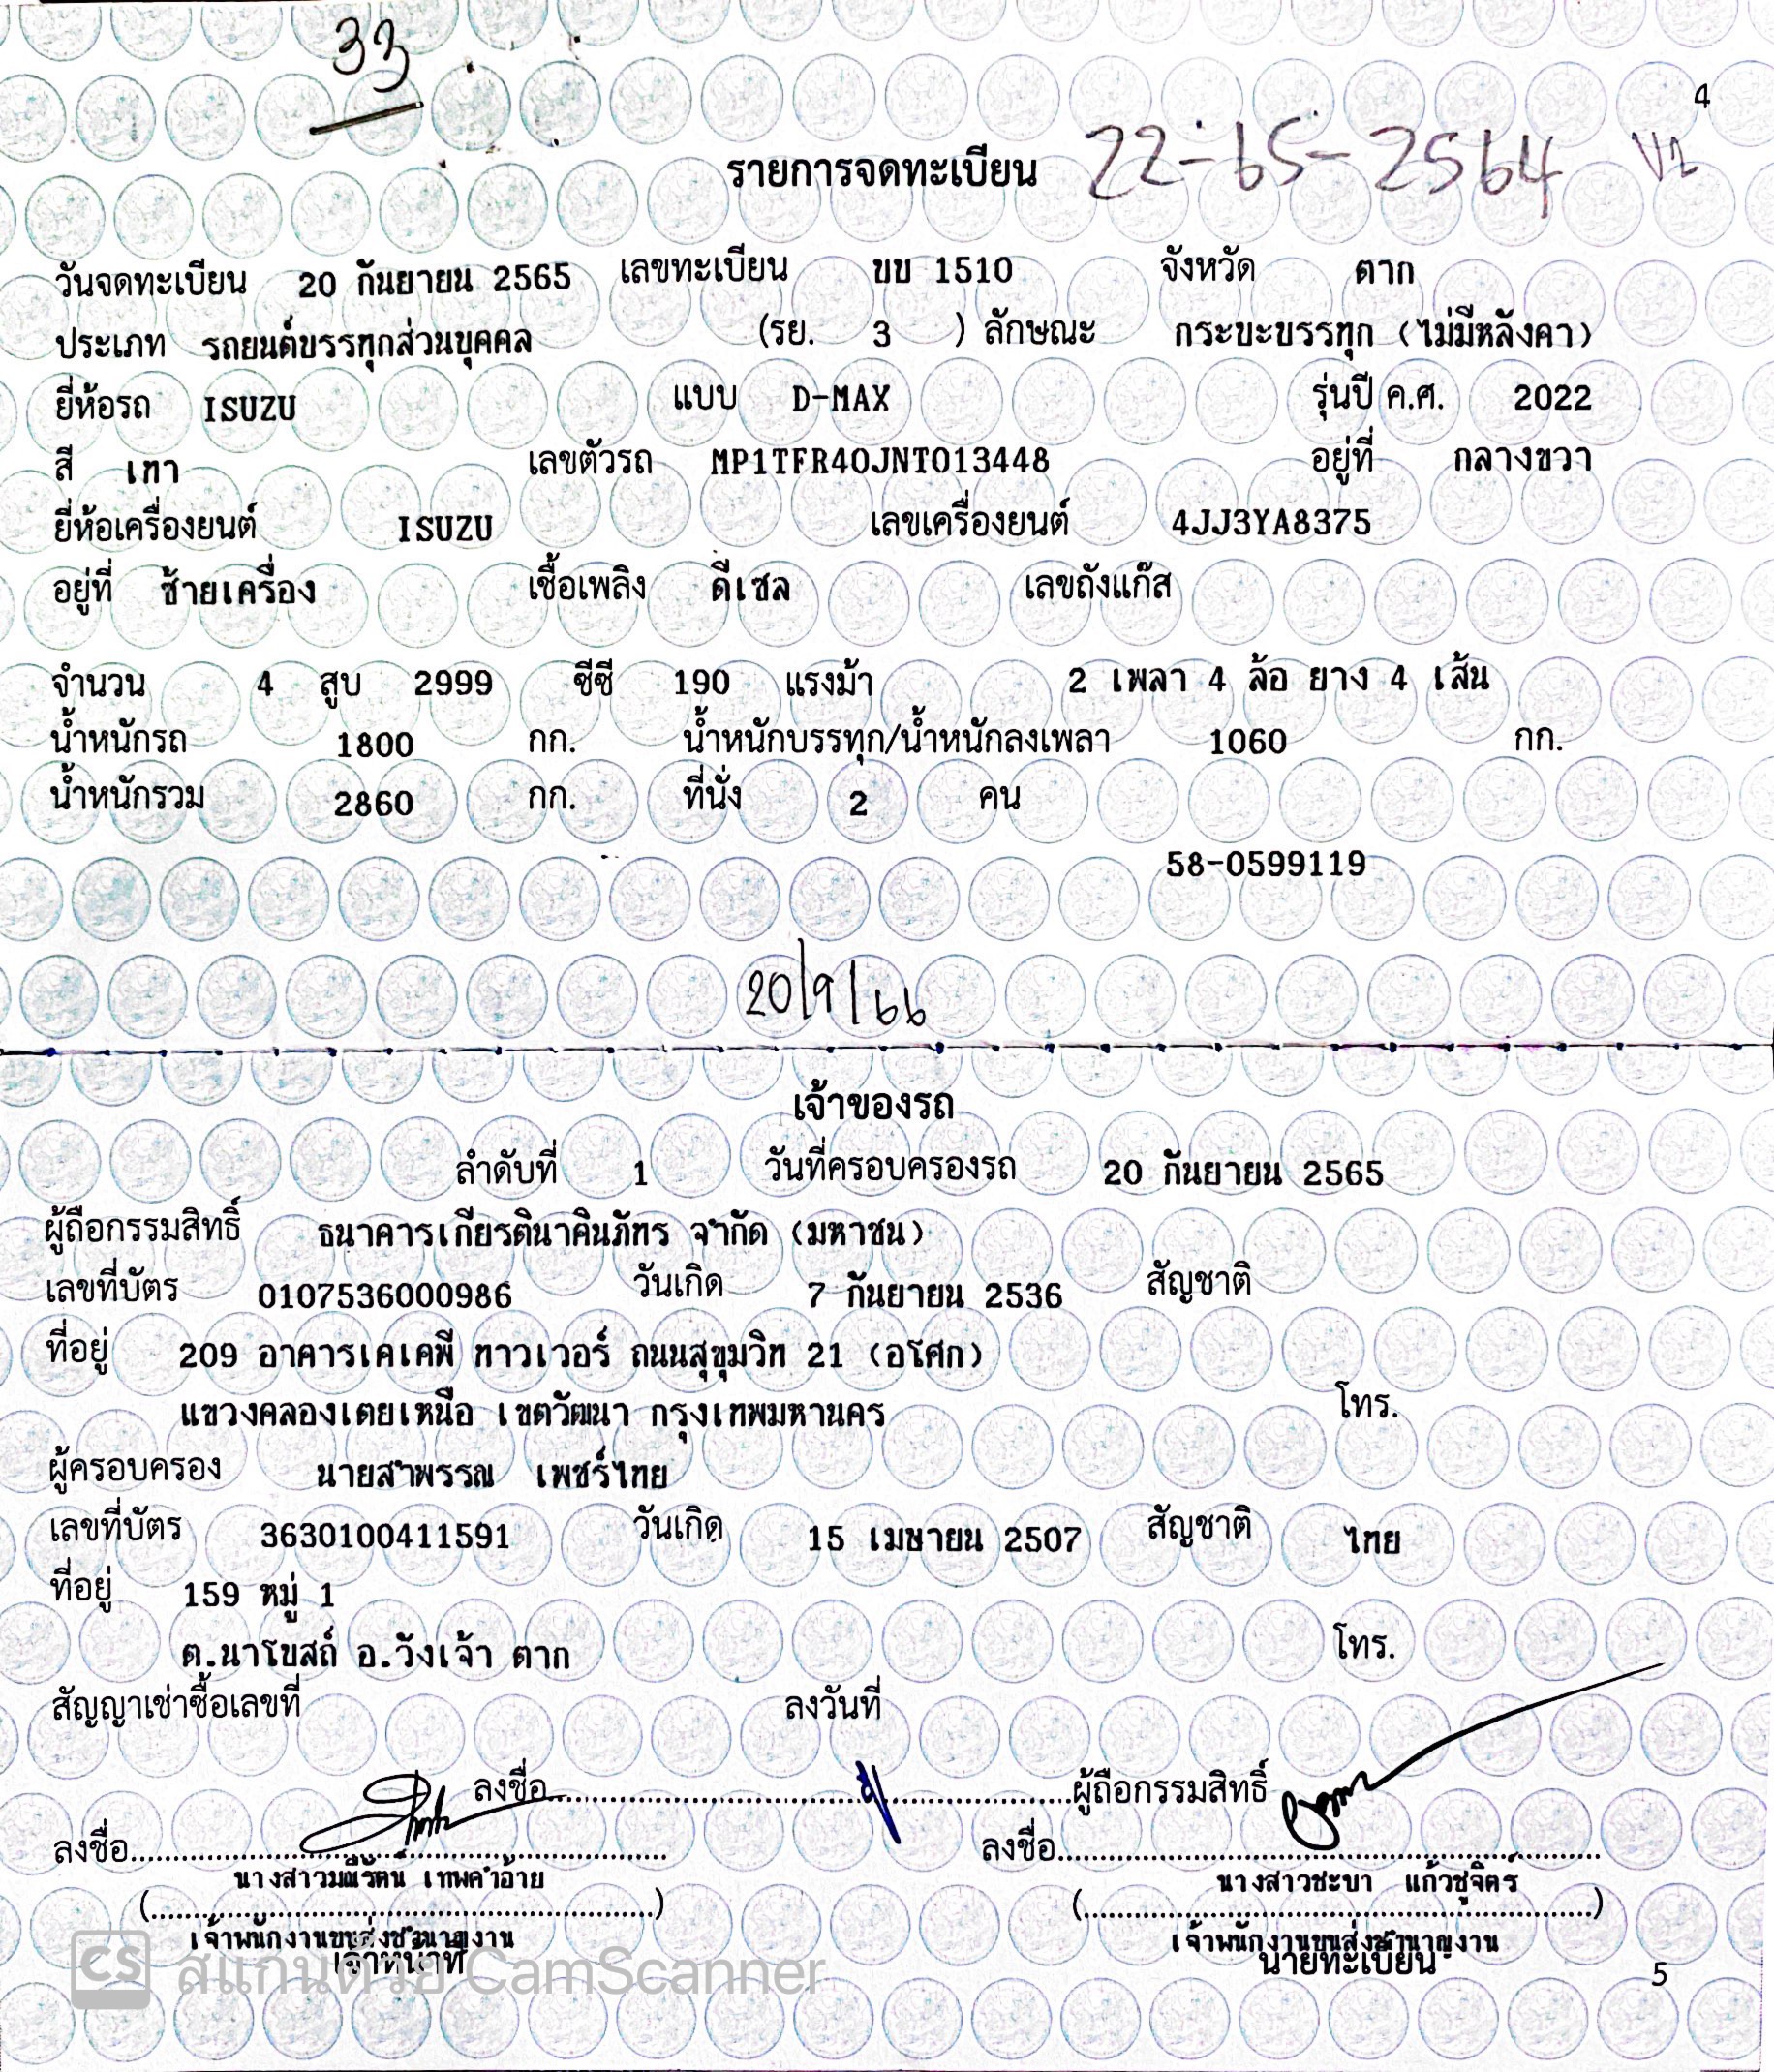 33
4
รายการจดทะเบียน 22-65-2564
วันจดทะเบียน 20 กันยายน 2565 เลขทะเบียน ขบ 1510 จังหวัด ตาก
ประเภท รถยนต์บรรทุกส่วนบุคคล (รย. 3 ) ลักษณะ กระบะบรรทุก (ไม่มีหลังคา)
ยี่ห้อรถ ISUZU แบบ D-MAX รุ่นปี ค.ศ. 2022
สี เทา เลขตัวรถ MP1TFR40JNT013448 อยู่ที่ กลางขวา
ยี่ห้อเครื่องยนต์ ISUZU เลขเครื่องยนต์ 4JJ3YA8375
อยู่ที่ ซ้ายเครื่อง เชื้อเพลิง ดีเซล เลขถังแก๊ส
จำนวน 4 สูบ 2999 ซีซี 190 แรงม้า 2 เพลา 4 ล้อ ยาง 4 เส้น
น้ำหนักรถ 1800 กก. น้ำหนักบรรทุก/น้ำหนักลงเพลา 1060 กก.
น้ำหนักรวม 2860 กก. ที่นั่ง 2 คน
58-0599119
20/9/66
เจ้าของรถ
ลำดับที่ 1 วันที่ครอบครองรถ 20 กันยายน 2565
ผู้ถือกรรมสิทธิ์ ธนาคารเกียรตินาคินภัทร จำกัด (มหาชน)
เลขที่บัตร 0107536000986 วันเกิด 7 กันยายน 2536 สัญชาติ
ที่อยู่ 209 อาคารเคเคพี ทาวเวอร์ ถนนสุขุมวิท 21 (อโศก)
แขวงคลองเตยเหนือ เขตวัฒนา กรุงเทพมหานคร โทร.
ผู้ครอบครอง นายสำพรรณ เพชร์ไทย
เลขที่บัตร 3630100411591 วันเกิด 15 เมษายน 2507 สัญชาติ ไทย
ที่อยู่ 159 หมู่ 1
ต.นาโบสถ์ อ.วังเจ้า ตาก โทร.
สัญญาเช่าซื้อเลขที่ ลงวันที่
ลงชื่อ ผู้ถือกรรมสิทธิ์
ลงชื่อ ลงชื่อ
นางสาวมณีรัตน์ เทพคำอ้าย นางสาวชะบา แก้วชูจิตร
เจ้าพนักงานขนส่งชำนาญงาน เจ้าพนักงานขนส่งชำนาญงาน
เจ้าหน้าที่ นายทะเบียน
CS สแกนด้วย CamScanner
5